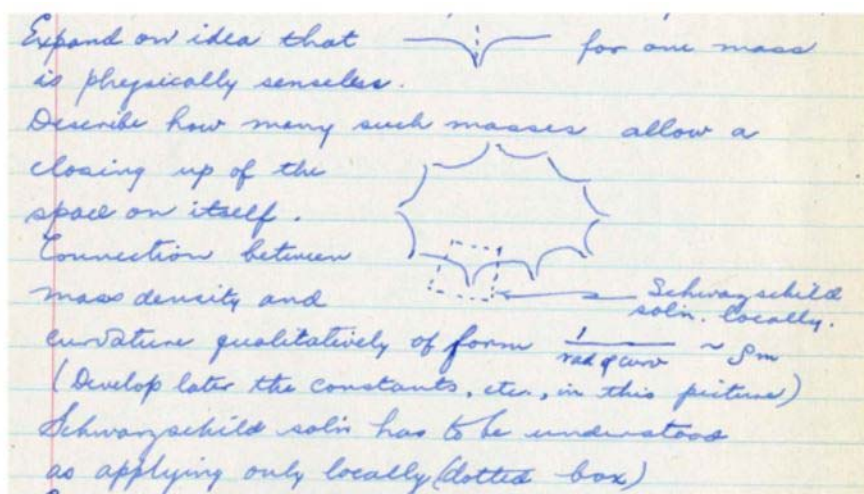 Expand on idea that for one mass
is physically senseless.
Describe how many such masses allow a
closing up of the
space on itself.
Connection between
mass density and
Schwarzschild
soln. locally.
curvature qualitatively of form 1/rad of curv ~ ρm
(Develop later the constants, etc., in this picture)
Schwarzschild soln has to be understood
as applying only locally (dotted box)